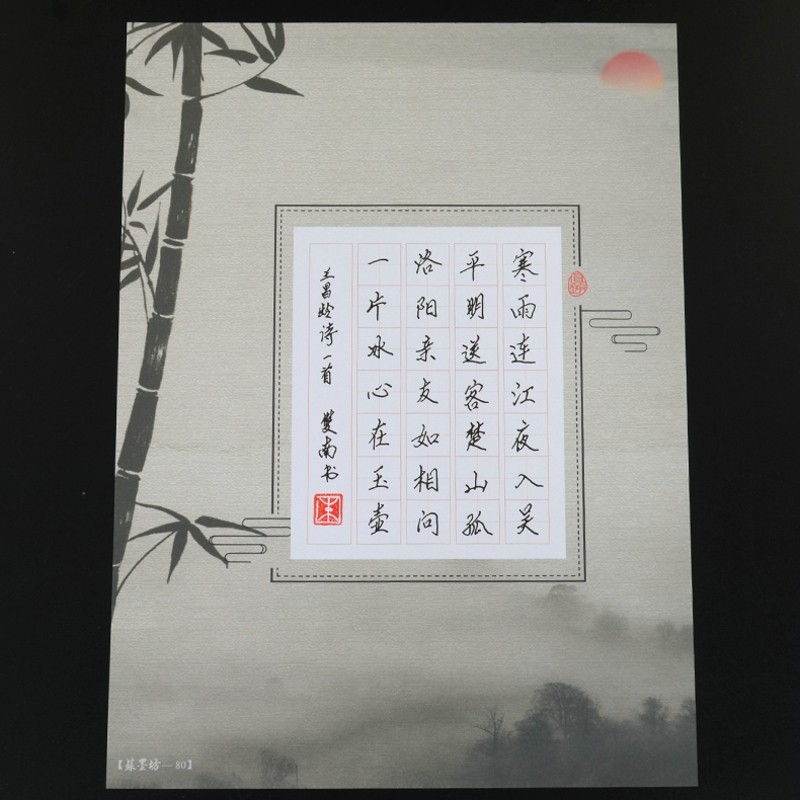 寒雨连江夜入吴
平明送客楚山孤
洛阳亲友如相问
一片冰心在玉壶
王昌龄诗一首 双南书
【苏墨坊—80】